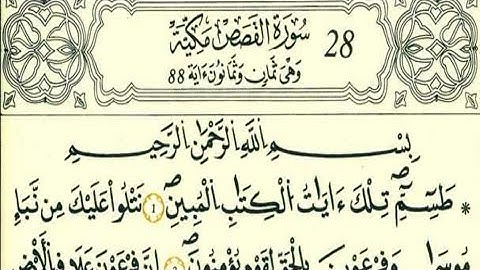 28 سُورَةُ الْقَصَصِ مَكِّيَّةٌ
وَهْىَ ثَمَانٍ وَثَمَانُونَ ءَايَةً 88
بِسْمِ اللَّهِ الرَّحْمَٰنِ الرَّحِيمِ
* طَسِمِّ تِلْكَ ءَايَاتُ الْكِتَابِ الْمُبِينِ 1 نَتْلُوا عَلَيْكَ مِن نَّبَإِ
مُوسَىٰ وَفِرْعَوْنَ بِالْحَقِّ لِقَوْمٍ يُؤْمِنُونَ 2 إِنَّ فِرْعَوْنَ عَلَا فِي الْأَرْضِ